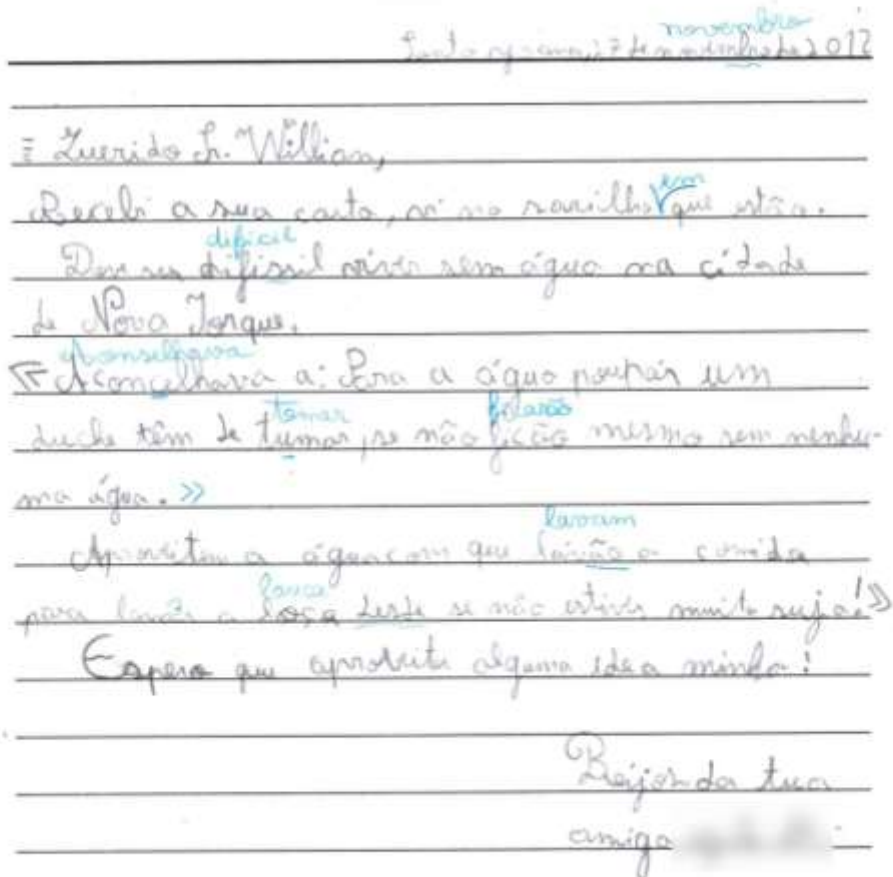 novembro
de novembro de 2012
Querido Sr. Willian,
em
Recebi a sua carta, vi no sarilho que estão.
dificil
Deve ser difissil viver sem água na cidade
de Nova Iorque.
Aconselhava
« Aconcelhava a: Para a água poupar um
tomar ficarão
duche têm de tumar, se não ficão mesmo sem nenhu-
ma água. »
lavam
Aproveitem a água com que lavão a comida
louça
para lavar a loça deste se não estiver muito suja! »
Espero que aproveite alguma idea minha!
Beijos da tua
amiga